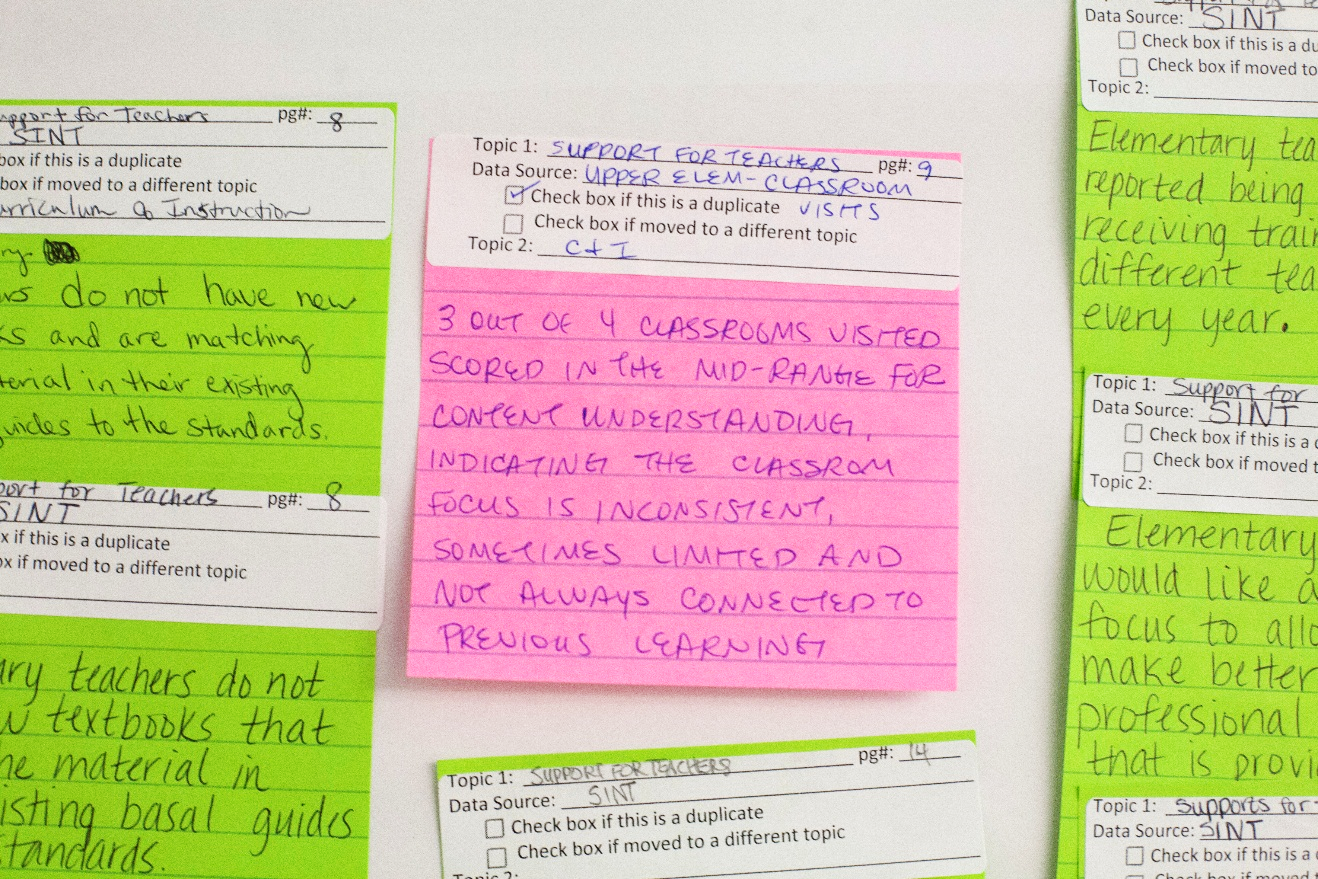 upport for Teachers pg#: 8
SINT
box if this is a duplicate
box if moved to a different topic
urriculum & Instruction
ry
ws do not have new
ks and are matching
terial in their existing
guides to the standards.
port for Teachers pg#: 8
SINT
x if this is a duplicate
ox if moved to a different topic
ary teachers do not
w textbooks that
he material in
isting basal guides
standards.
Topic 1: SUPPORT FOR TEACHERS pg#: 9
Data Source: UPPER ELEM-CLASSROOM
Check box if this is a duplicate VISITS
Check box if moved to a different topic
Topic 2: C+I
3 OUT OF 4 CLASSROOMS VISITED
SCORED IN THE MID-RANGE FOR
CONTENT UNDERSTANDING,
INDICATING THE CLASSROM
FOCUS IS INCONSISTENT,
SOMETIMES LIMITED AND
NOT ALWAYS CONNECTED TO
PREVIOUS LEARNING
Topic 1: SUPPORT FOR TEACHERS pg#: 14
Data Source: SINT
Check box if this is a duplicate
Check box if moved to a different topic
Topic 2:
Data Source: SINT
Check box if this is a du
Check box if moved to
Topic 2:
Elementary tea
reported being
receiving train
different tea
every year.
Topic 1: Support for
Data Source: SINT
Check box if this is a
Check box if moved t
Topic 2:
Elementary
would like a
focus to allo
make better
professional
that is provi
Topic 1: Supports for
Data Source: SINT
Check box if this is a
Check box if moved to